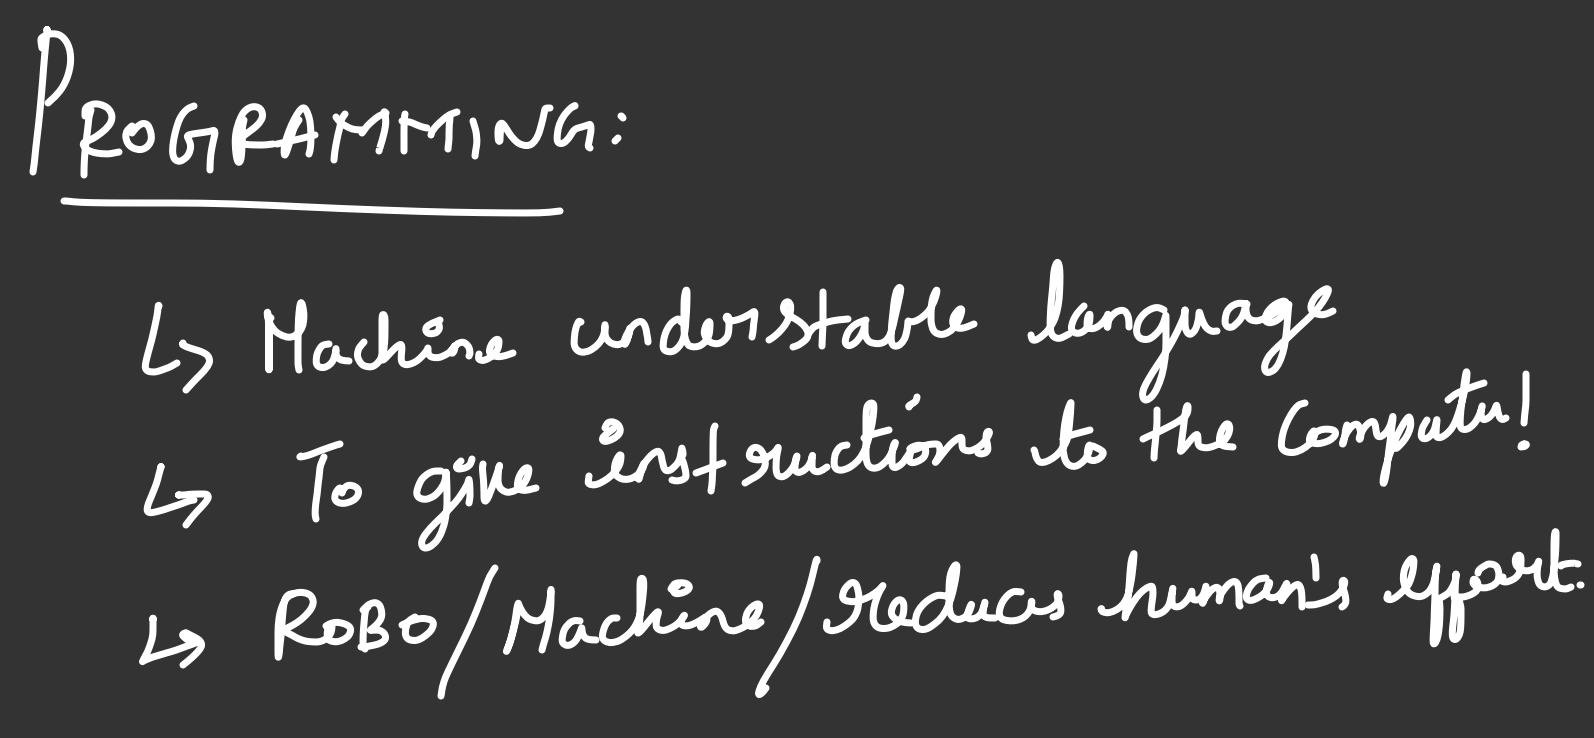 PROGRAMMING:
↳ Machine understable language
↳ To give instructions to the Computer!
↳ ROBO/Machine/reduces human's effort.